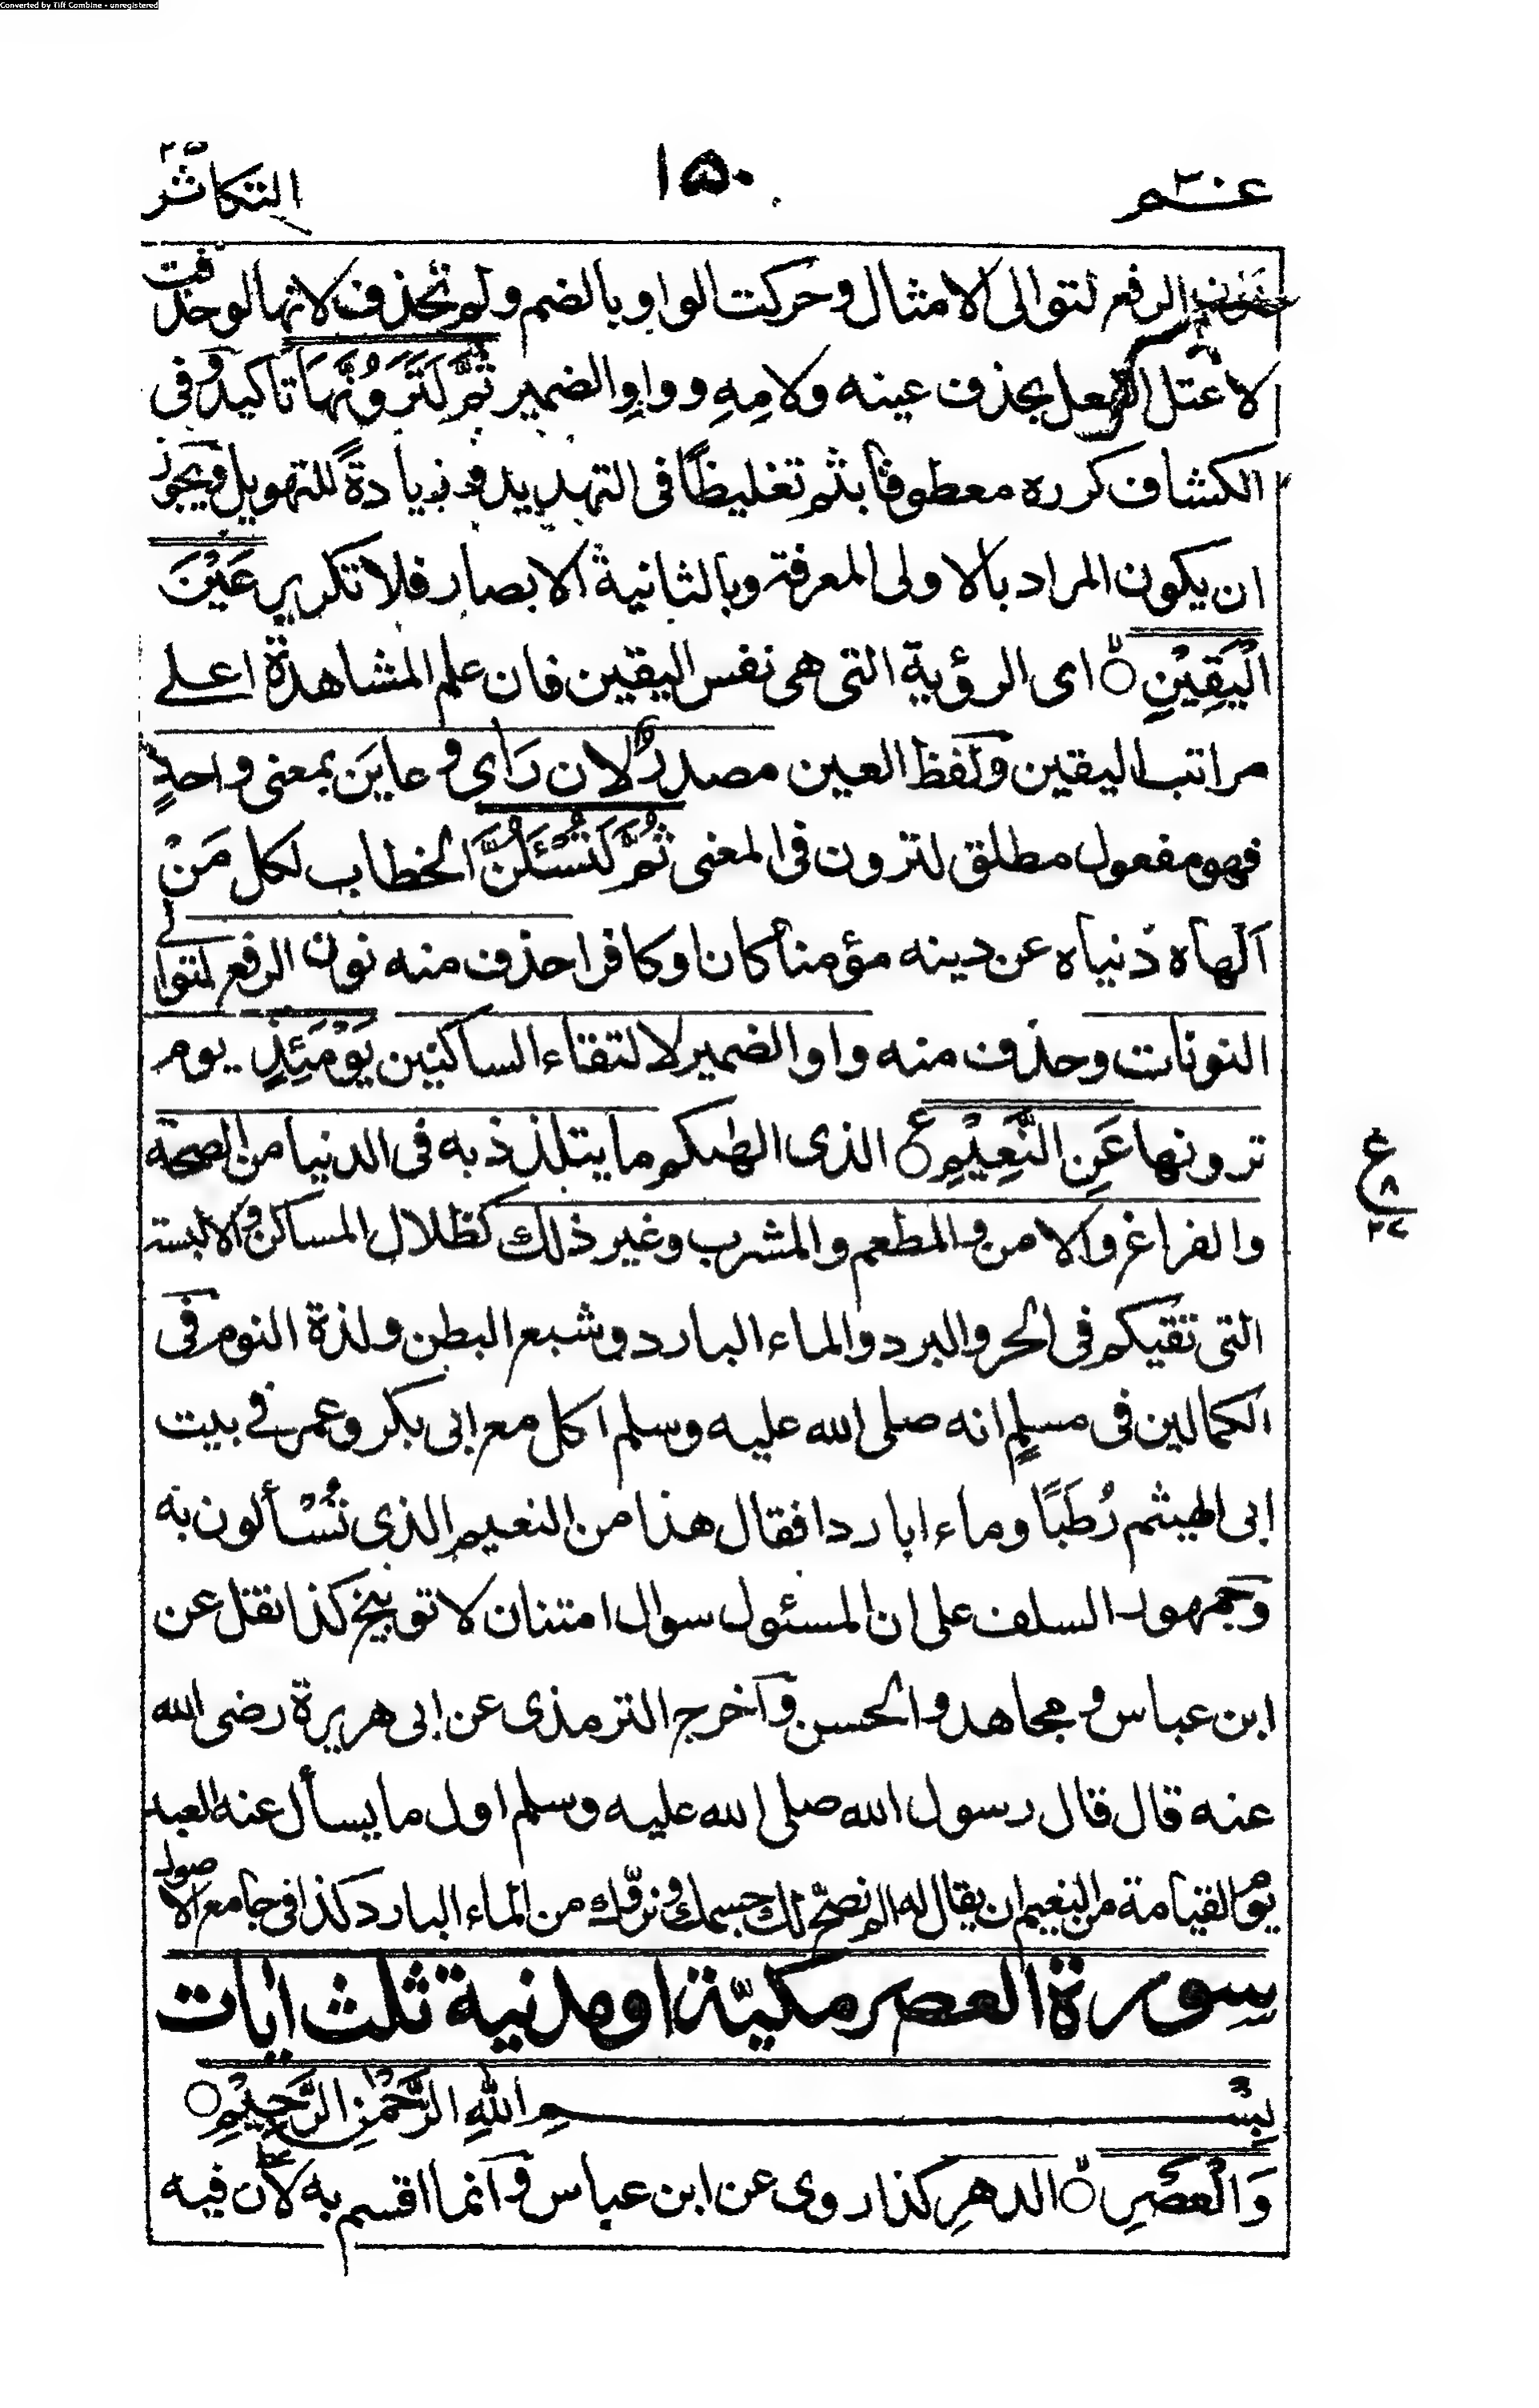 Converted by Tiff Combine - unregistered
عم ٣٠
١٥٠
التكاثر
نون الرفع لتوالى الامثال وحركت الواو بالضم ولم تحذف لانها لو حذفت
لاعتل الفعل بحذف عينه ولامِهِ وواوِ الضمير ثُمَّ لَتَرَوُنَّهَا تاكيد وفى
الكشاف كرره معطوفا بثم تغليظًا فى التهديد وزيادةً للتهويل ويجوز
ان يكون المراد بالاولى المعرفة وبالثانية الابصار فلا تكرير عَيْنَ
الْيَقِيْنِ ۝ اى الرؤية التى هى نفس اليقين فان علم المشاهدة اعلے
مراتب اليقين ولفظ العين مصدر لان رَاى و عاينَ بمعنى واحدٍ
فهو مفعول مطلق لترون فى المعنى ثُمَّ لَتُسْئَلُنَّ الخطاب لكل مَنْ
اَلهاه دُنياه عن دينه مؤمنا كان او كافرا حذف منه نون الرفع لتوالے
النونات وحذف منه واو الضمير لالتقاء الساكنين يَوْمَئِذٍ يوم
ترونها عَنِ النَّعِيْمِ ۝ الذى الهٰىكم ما يتلذذ به فى الدنيا من الصحة
والفراغ والامن والمطعم والمشرب وغير ذلك كظلال المساكن والالبسة
التى تقيكم فى الحر والبرد والماء البارد وشبع البطن ولذة النوم فى
الكمالين فى مسلمٍ انه صلى الله عليه وسلم اكل مع ابى بكر وعمر فے بيت
ابى الهيثم رُطَبًا وماء ابا ردا فقال هذا من النعيم الذى تُسْألون به
وجمهور السلف على ان المسئول سوال امتنان لا توبيخ كذا نقل عن
ابن عباس و مجاهد و الحسن وآخرج الترمذى عن ابى هريرة رضى الله
عنه قال قال رسول الله صلى الله عليه وسلم اول ما يسأل عنه العبد
يوم القيامة من النعيم ان يقال له الم نصحّ لك جسمك ونروّك من الماء البارد كذا فى جامع الاصول
ع
٨
٢٧
سورة العصر مكيّة او مدنية ثلث اٰيات
بِسْمِ اللهِ الرَّحْمٰنِ الرَّحِيْمِ ۝
وَالْعَصْرِ ۝ الدهرِ كذا روى عن ابن عباس و آنما اقسم به لان فيه